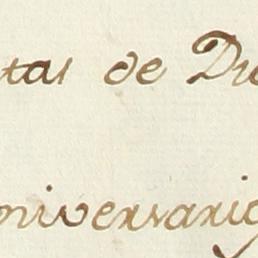 tas de Di
niversario